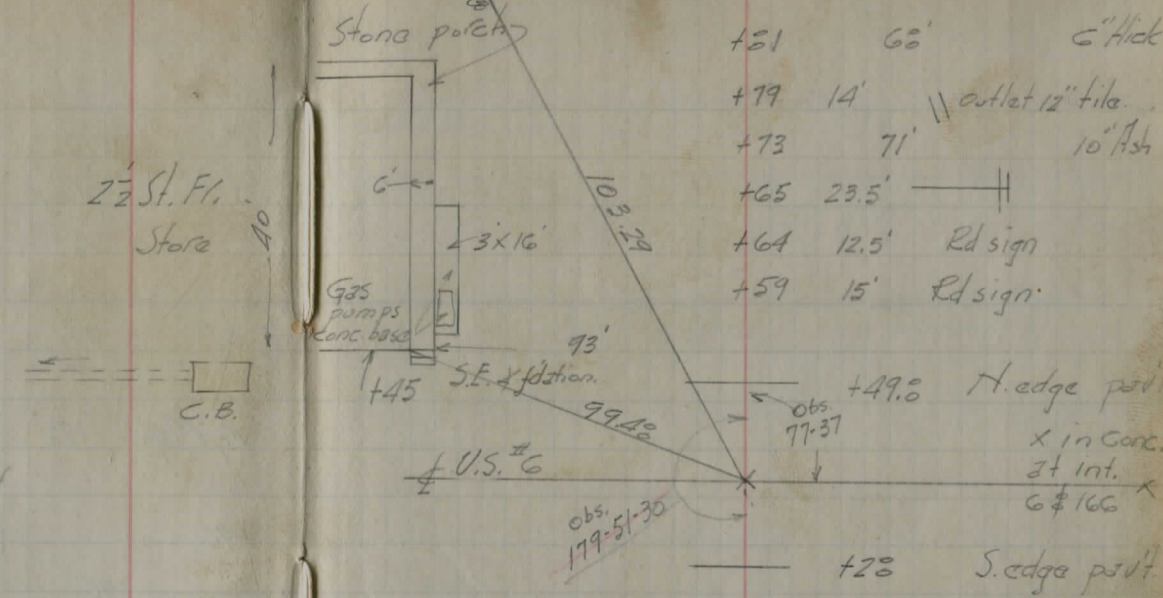 Stone porch
2½ St. Fr.
Store
40
6'
3'x16'
Gas
pumps
Conc. base
93'
S.E. f'dation.
+45
C.B.
103.29
99.48
℄ U.S. #6
Obs.
179-51-30
Obs.
77-37
+81 68' 6" Hick
+79 14' outlet 12" tile.
+73 71' 10" Ash
+65 23.5'
+64 12.5' Rd sign
+59 15' Rd sign.
+49.8 N. edge pav't
x in Conc.
at int.
6 & 166
+28 S. edge pav't.